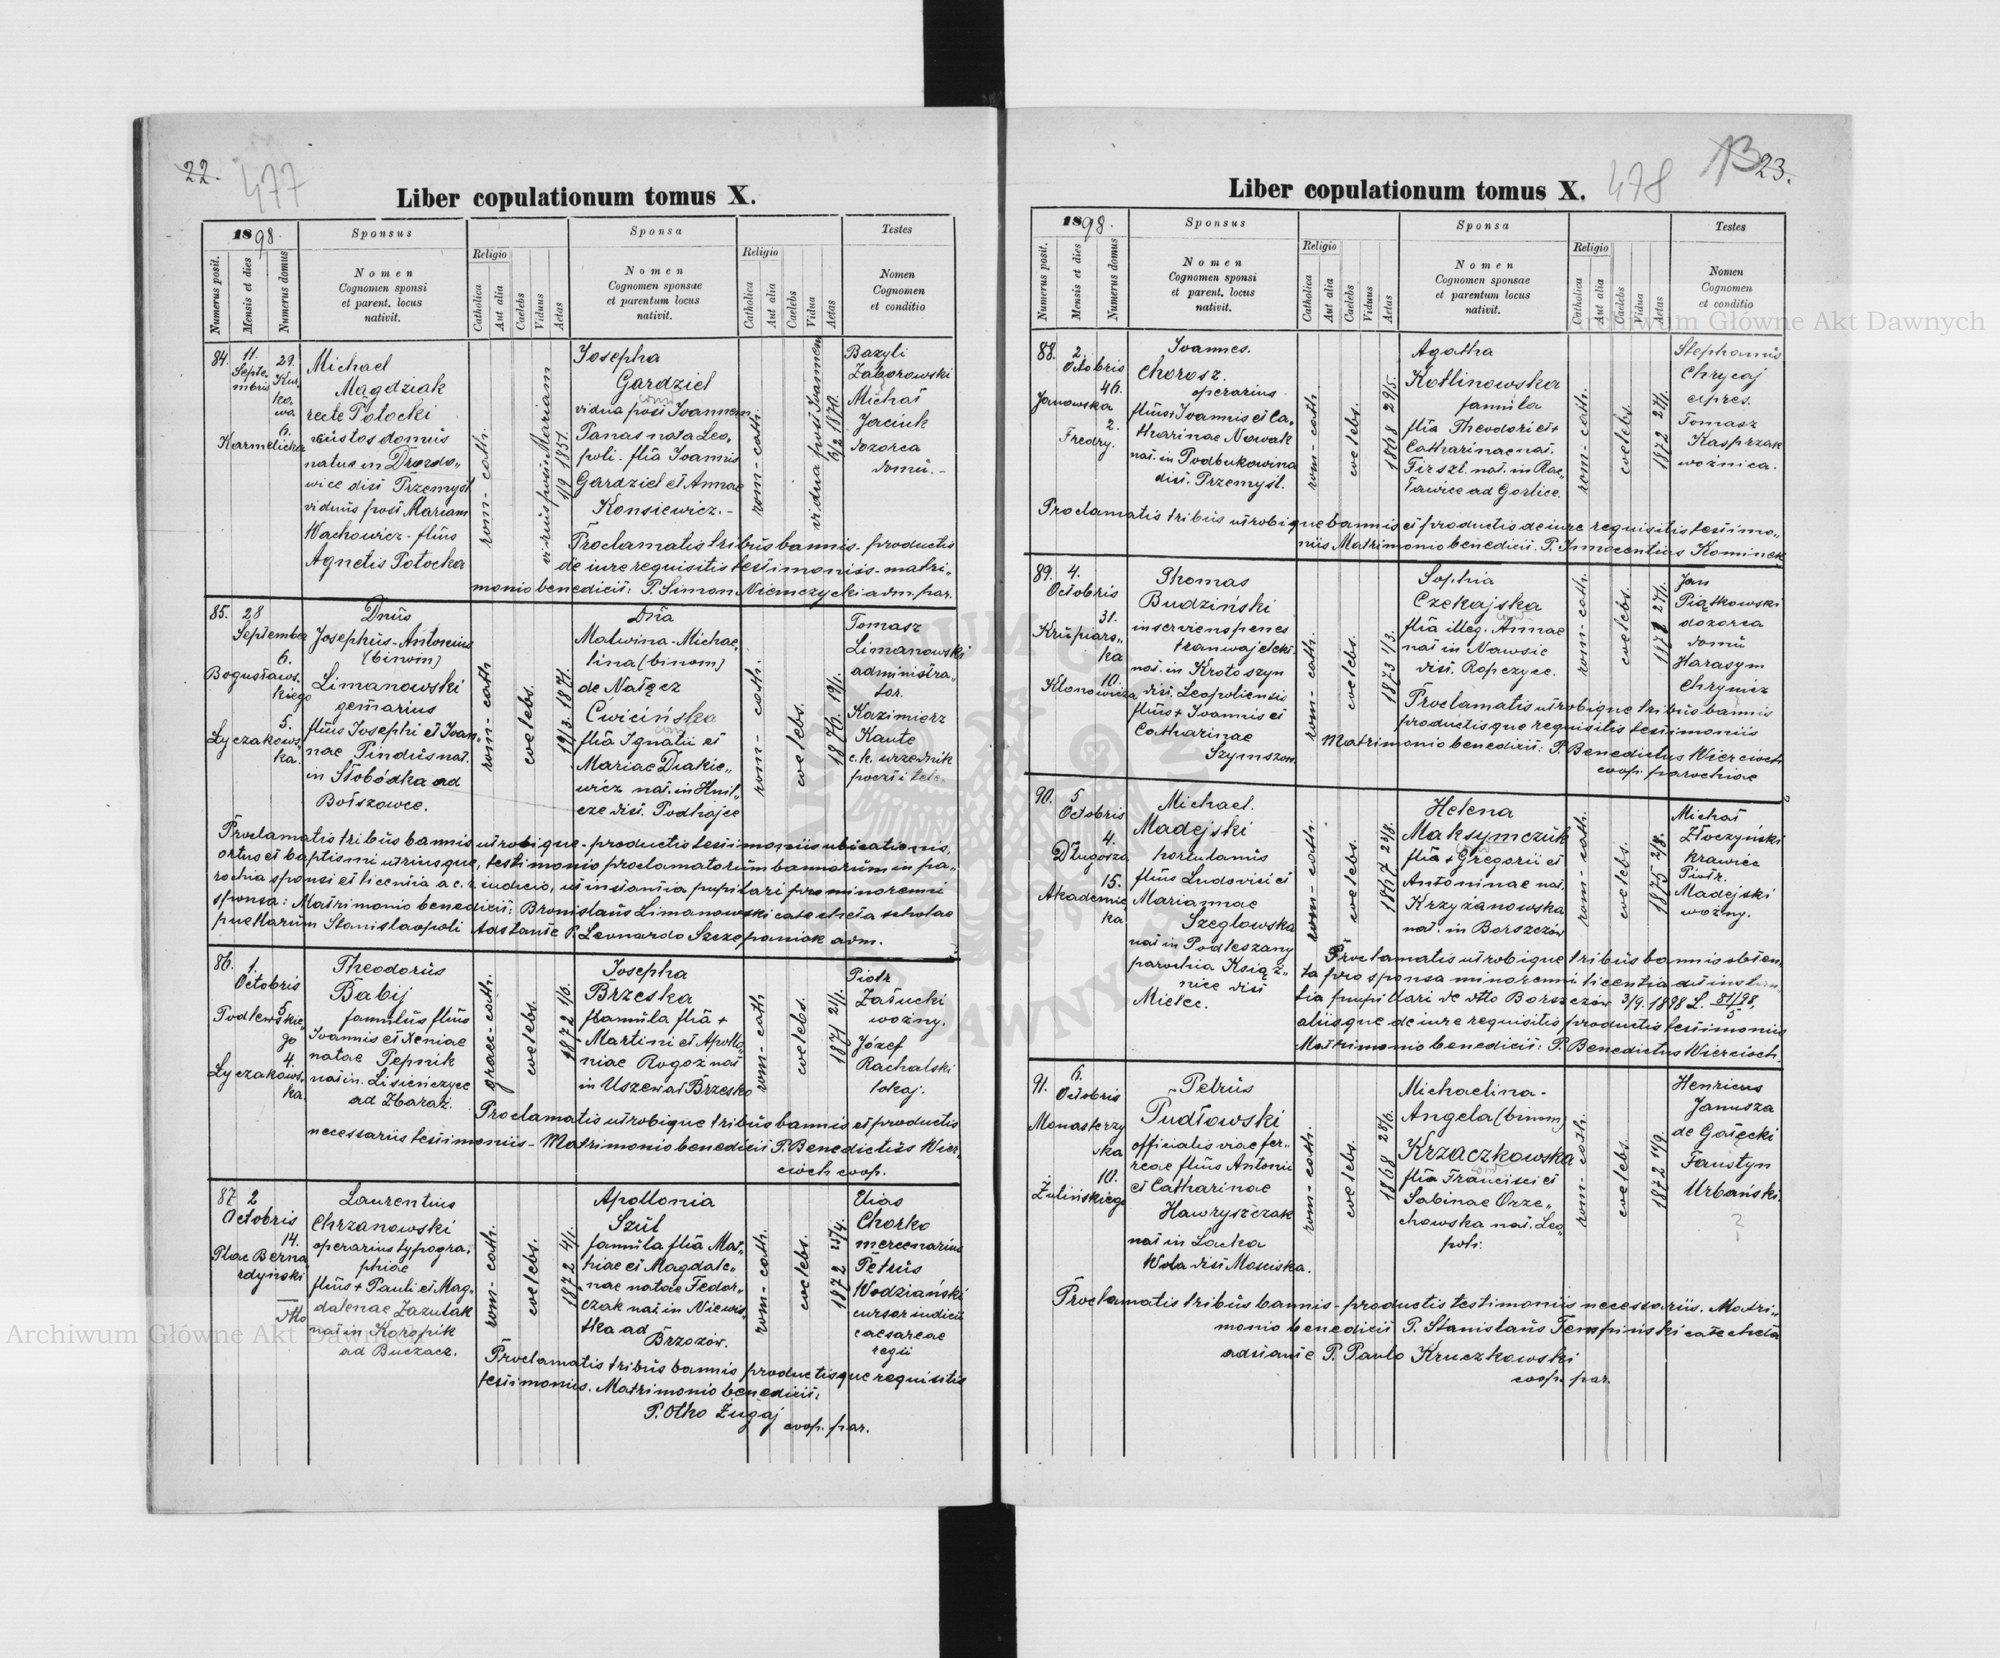 22.
477
Liber copulationum tomus X.
1898.
Sponsus
Sponsa
Testes
Numerus posit.
Mensis et dies
Numerus domus
Nomen
Cognomen sponsi
et parent. locus
nativit.
Religio
Catholica
Aut alia
Caelebs
Viduus
Aetas
Nomen
Cognomen sponsae
et parentum locus
nativit.
Religio
Catholica
Aut alia
Caelebs
Vidua
Aetas
Nomen
Cognomen
et conditio
84.
11.
Septe
mbris
29.
Kur
ko.
wa.
6.
Karmelicka
Michael
Magdziak
recte Potocki
custos domus
natus in Drozdo„
wice dist Przemysl
viduus post Mariam
Wachowicz - filius
Agnetis Potocka
rom - cath.
viduus post Mariam
1/9 1851.
Josepha
Gardziel
vidua post Joannem
Panas nata Leo„
poli - filia Joannis
Gardziel et Annae
Konsiewicz. -
rom - cath.
vidua post Joannem
1870.
Bazyli
Zaborowski
Michał
Jaciuk
dozorca
domu. -
Proclamatis tribus bannis - productis
de iure requisitis testimoniis - matri„
monio benedicit: P. Simon Niemczycki adm. par.
85.
28
September
6.
Bogusławs.
kiego
5.
Łyczakows„
ka.
Dnus
Josephus - Antonius
(binom)
Limanowski
gemarius
filius Josephi et Joan„
nae Pindus nat.
in Słobódka ad
Bołszowce.
rom - cath
coelebs.
19/3. 1871.
Dna
Malwina - Michae„
lina (binom)
de Nałęcz
Cwicińska
filia Ignatii et
Mariae Diakie„
wicz nat. in Hnil„
cze dist. Podhajce
rom - cath.
coelebs.
1876. 19/1.
Tomasz
Limanowski
administra„
tor.
Kazimierz
Kaute
c.k. urzędnik
poczt i telr.
Proclamatis tribus bannis utrobique - productis testimoniis ubicationis,
ortus et baptismi utriusque, testimonio proclamatorum bannorum in pa„
rochia sponsi et licentia a c. r. iudicio, ut instantia pupilari pro minorenni
sponsa: Matrimonio benedicit: Bronislaus Limanowski catecheta scholae
puellarum Stanislaopoli Adstante P. Leonardo Szczepaniak adm.
86.
1.
Octobris
5
Podlewskie„
go
4.
Łyczakows„
ka.
Theodorus
Babij
famulus filius
Joannis et Xeniae
natae Pepnik
nat in. Lisieńczyce
ad Zbaraż.
graec - cath.
coelebs.
1872 1/6.
Josepha
Brzeska
famula filia +
Martini et Apollo
niae Rogoz nat
in Uszew ad Brzesko
rom - cath
coelebs
1871 21/1.
Piotr
Załucki
woźny.
Józef
Rachalski
lokaj.
Proclamatis utrobique tribus bannis et productis
necessariis testimoniis - Matrimonio benedicit P. Benedictus Wier„
cioch coop.
87
2
Octobris
14.
Plac Berna
rdyński
dtto
Laurentius
Chrzanowski
operarius typogra„
phiae
filius + Pauli et Mag„
dalenae Zazulak
nat in Koropik
ad Buczacz.
rom - cath.
coelebs.
1872 4/1.
Apollonia
Szul
famula filia Mat„
thiae et Magdale„
nae natae Fedor„
czak nat in Niewis„
tka ad
Brzozów.
rom - cath.
coelebs.
1872 25/4.
Elias
Chorko
mercenarius
Petrus
Wodziański
cursor iudicii
caesareae
regii
Proclamatis tribus bannis productisque requisitis
testimoniis. Matrimonio benedicit:
P. Otho Zugaj
coop. par.
478
23.
Liber copulationum tomus X.
1898.
Sponsus
Sponsa
Testes
Numerus posit.
Mensis et dies
Numerus domus
Nomen
Cognomen sponsi
et parent. locus
nativit.
Religio
Catholica
Aut alia
Caelebs
Viduus
Aetas
Nomen
Cognomen sponsae
et parentum locus
nativit.
Religio
Catholica
Aut alia
Caelebs
Vidua
Aetas
Nomen
Cognomen
et conditio
88.
2.
Octobris
46.
Janowska
2.
Fredry.
Joannes.
Chorosz.
operarius
filius + Joannis et Ca„
tharinae Nowak
nat. in Podbukowina
dist. Przemyśl.
rom - cath
coelebs.
1868 29/5.
Agatha
Kotlinowska
famula
filia Theodori et +
Catharinae nat.
Firszt. nat. in Rac„
ławice ad Gorlice.
rom - cath.
coelebs.
1872 27/1.
Stephanus
Chrycaj
expres.
Tomasz
Kasprzak
woźnica.
Proclamatis tribus utrobique bannis et productis de iure requisitis testimo„
niis Matrimonio benedicit. P. Innocentius Kominek
89.
4.
Octobris
31.
Krupiars„
ka
10.
Klonowicza
Thomas
Budziński
inserviens penes
tramwaj elektri.
nat. in Krotoszyn
dist. Leopoliensis
filius + Joannis et
Catharinae
Szymszon.
rom - cath.
coelebs.
1873 1/3.
Sophia
Czekajska
filia illeg. Annae
nat in Nawsie
dist. Ropczyce.
rom - cath.
coelebs.
27/1.
Jan
Piątkowski
dozorca
domu
Harasym
Chrynicz
Proclamatis utrobique tribus bannis
productisque requisitis testimoniis
Matrimonio benedicit: P. Benedictus Wiercioch
coop. parochiae
90.
5
Octobris
4.
Długosza
15.
Akademic
ka.
Michael.
Madejski
hortulanus
filius Ludovici et
Mariannae
Szeglowska
nat in Podleszany
parochia Książ„
nice dist
Mielec.
rom - cath.
coelebs.
1867 22/8.
Helena
Maksymczuk
filia + Gregorii et
Antoninae nat.
Krzyżanowska
nat. in Borszczów
rom - cath.
coelebs.
1875 2/8.
Michał
Złoczyński
krawiec
Piotr.
Madejski
woźny.
Proclamatis utrobique tribus bannis obten„
ta pro sponsa minorenni licentia ut instan„
tia pupillari de dtto Borszczów 3/9. 1898 L. 81/98,
5
aliisque de iure requisitis productis testimoniis
Matrimonio benedicit: P. Benedictus Wiercioch.
91.
6.
Octobris
Monasterzy
ska
10.
Żulińskiego
Petrus
Pudłowski
officialis viae fer„
reae filius Antonii
et Catharinae
Hawryszczak
nat in Lacka
Wola dist Mosciska.
rom - cath.
coelebs.
1868 28/6.
Michaelina -
Angela (binom)
Krzaczkowska
filia Francisci et
Sabinae Orze„
chowska nat. Leo„
poli.
rom - cath.
coelebs.
1872 14/9.
Henricus
Janusza
de Gałęcki
Faustyn
Urbański.
?
Proclamatis tribus bannis - productis testimoniis necessariis. Matri„
monio benedicit P. Stanislaus Tempiński catecheta
adstante P. Paulo Kruczkowski
coop. par.
Archiwum Główne Akt Dawnych
Archiwum Główne Akt Dawnych